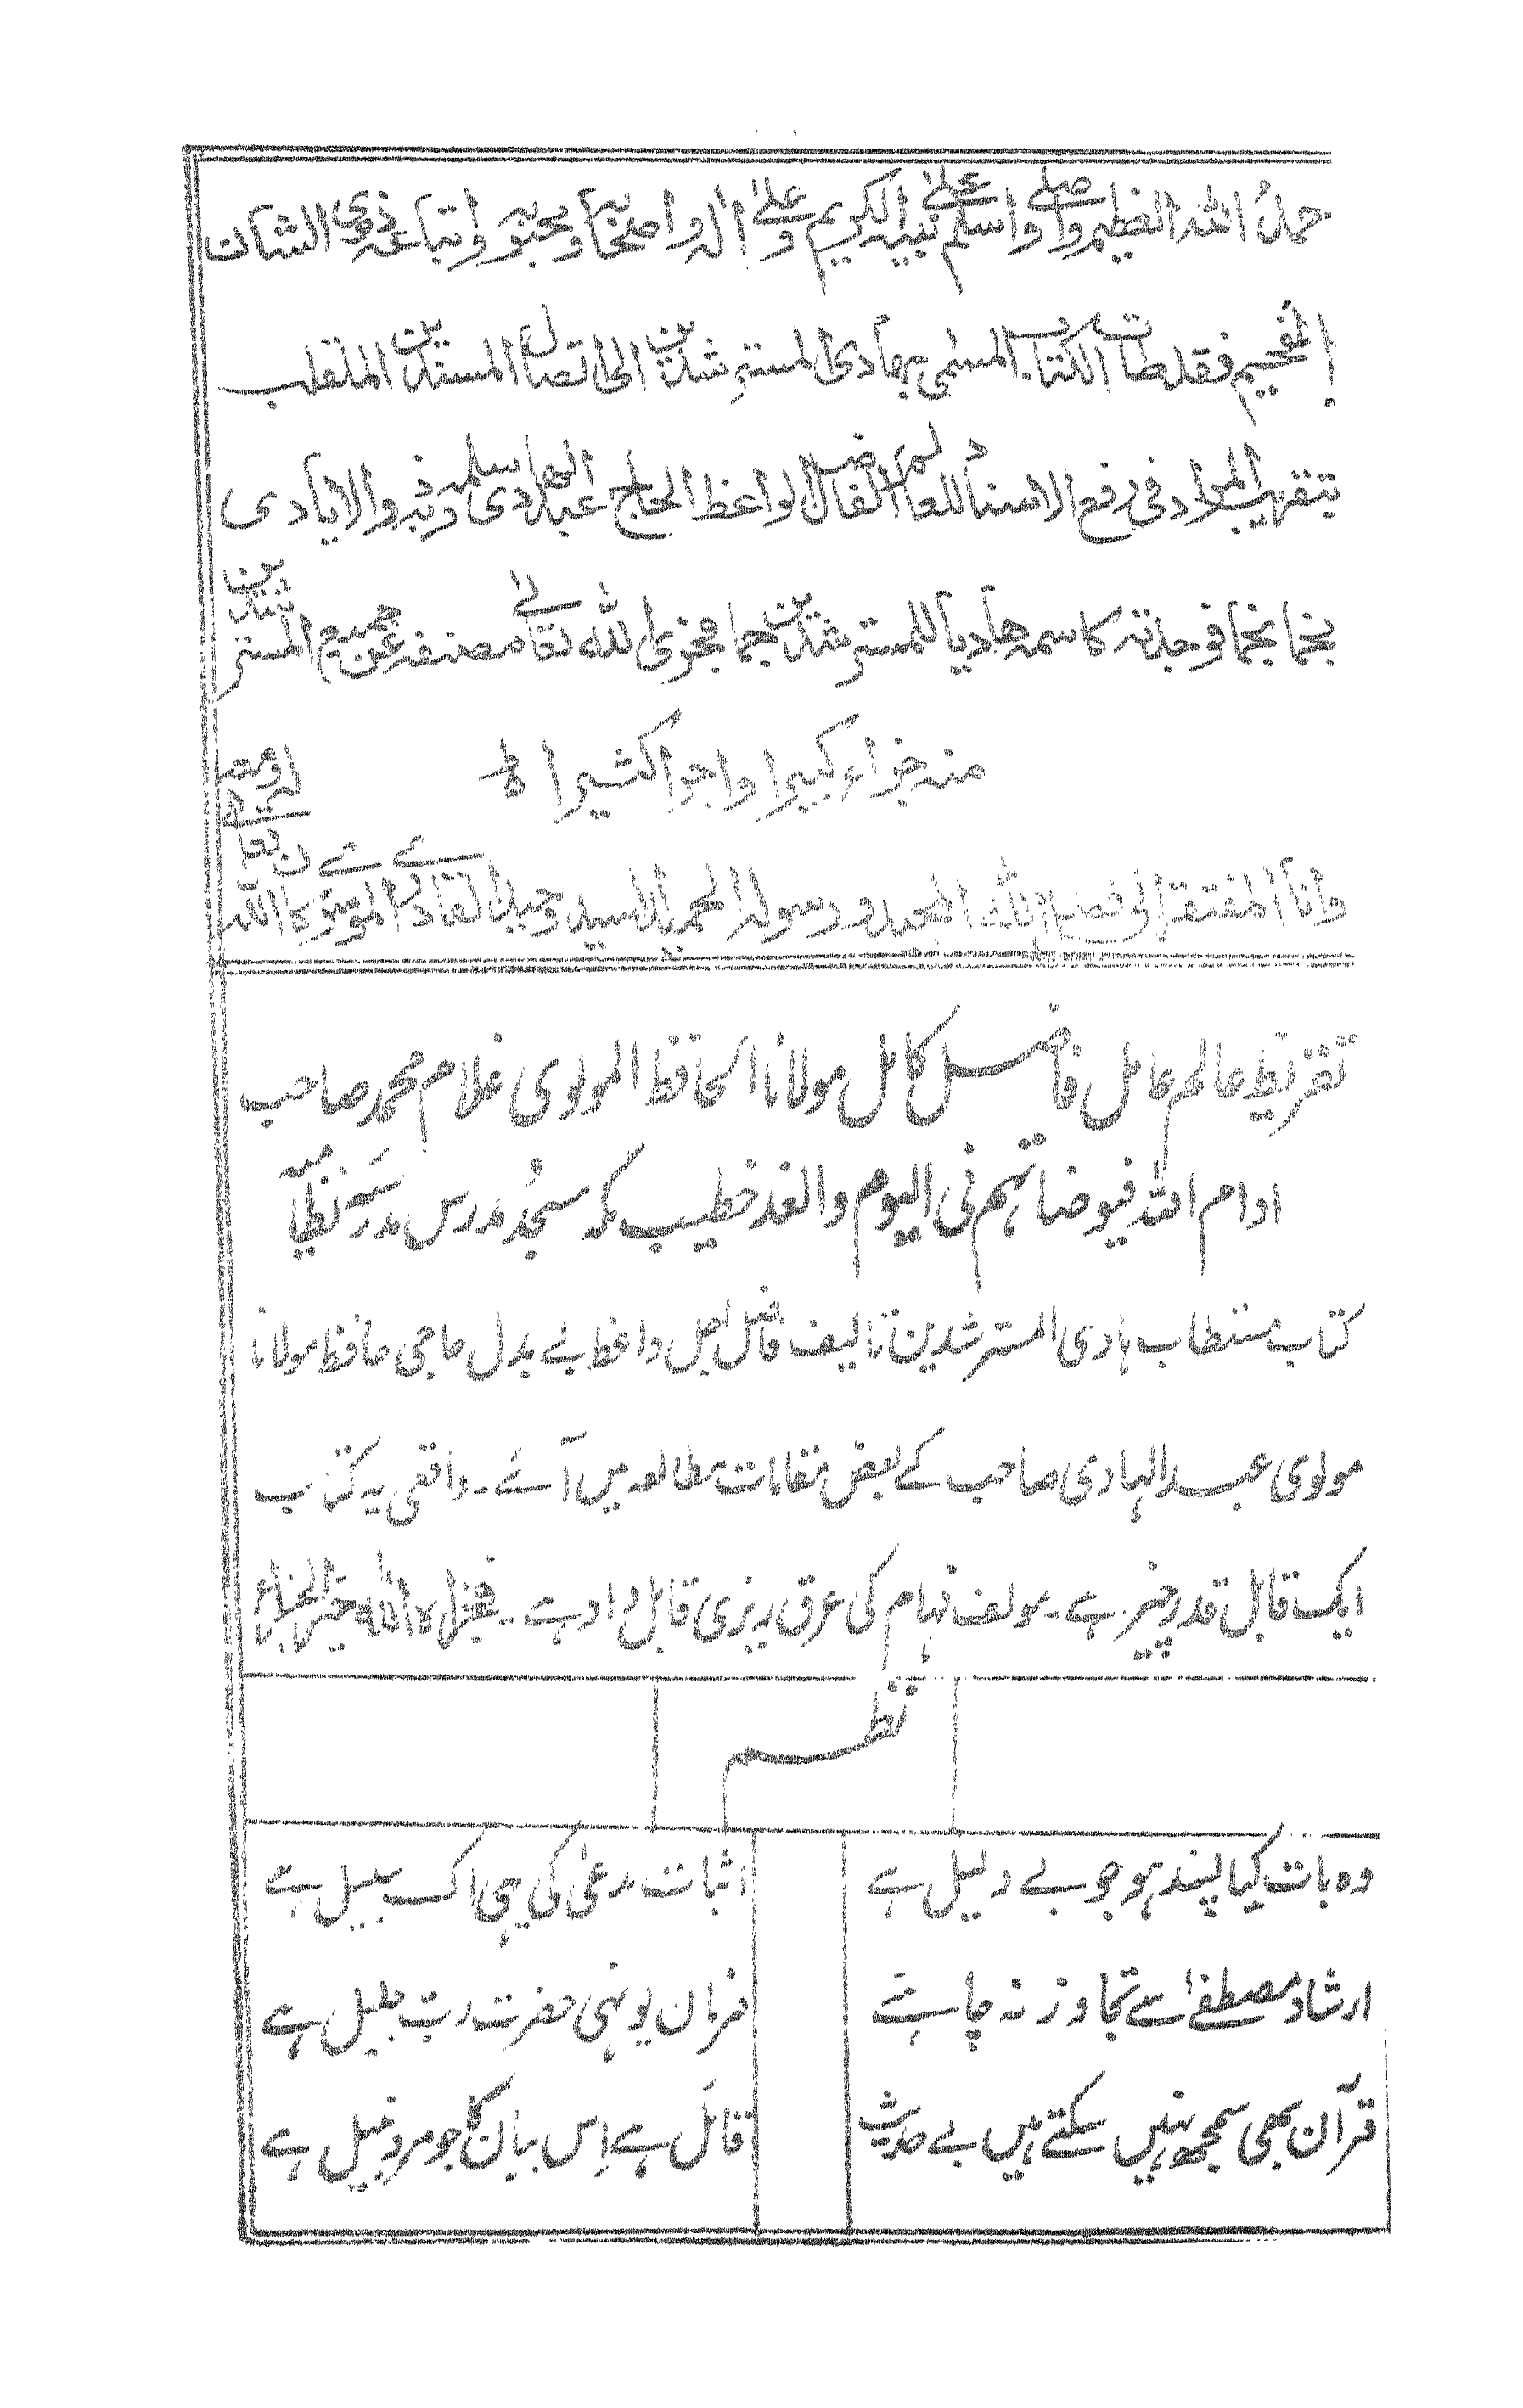 حمدُ الله العظيم واصلى واسلم على نبيه الكريم وعلى اله واصحابه ومحبيه واتباعه ذوى الشان
الفخيم فقد طالت الكتاب المسمى بهادى المسترشدين الى اتصال المسندين الملقلب
بتقريب المراد فى رفع الاسناد للعالم الفاضل الواعظ الحاج عبد الهادى سلمه ذو الايادى
نجما نجما فوجدته كاسمه هاديا للمسترشدين جما فجزى الله تعالى مصنفه عن جميع المسترشدين
منه جزاء كبيرا واجرا كثيرا
وانا المفتقر الى فضل الله المجيد ورسوله الحميد السيد وحيد القادرى الموسوى كان الله تعالى له
تقریظ عالم عامل فاضل کامل مولانا الحافظ المولوی غلام محمد صاحب
ادام اللہ فیوضاتہم فی الیوم والغد خطیب مکہ مسجد مدرس مدرسہ نظامیہ
کتاب مستطاب ہادی المسترشدین تالیف فاضل اجل واعظ بے بدل حاجی حافظ مولانا
مولوی عبد الہادی صاحب کے بعض مقامات مطالعہ میں آئے ۔ واقعی یہ کتاب
ایک قابل قدر چیز ہے ۔ مولف فہام کی عرق ریزی قابل داد ہے ۔ فجزاه الله خير الجزاء
نظم
وہ بات کیا پسند ہو جو بے دلیل ہے
اثبات مدعیٰ کی یہی اک سبیل ہے
ارشاد مصطفےٰ سے تجاوز نہ چاہئے
فرمان یونہی حضرت رب جلیل ہے
قرآن بھی سمجھ نہیں سکتے ہیں بے حدیث
قائل ہے اِس بیان کا جو مرد نبیل ہے